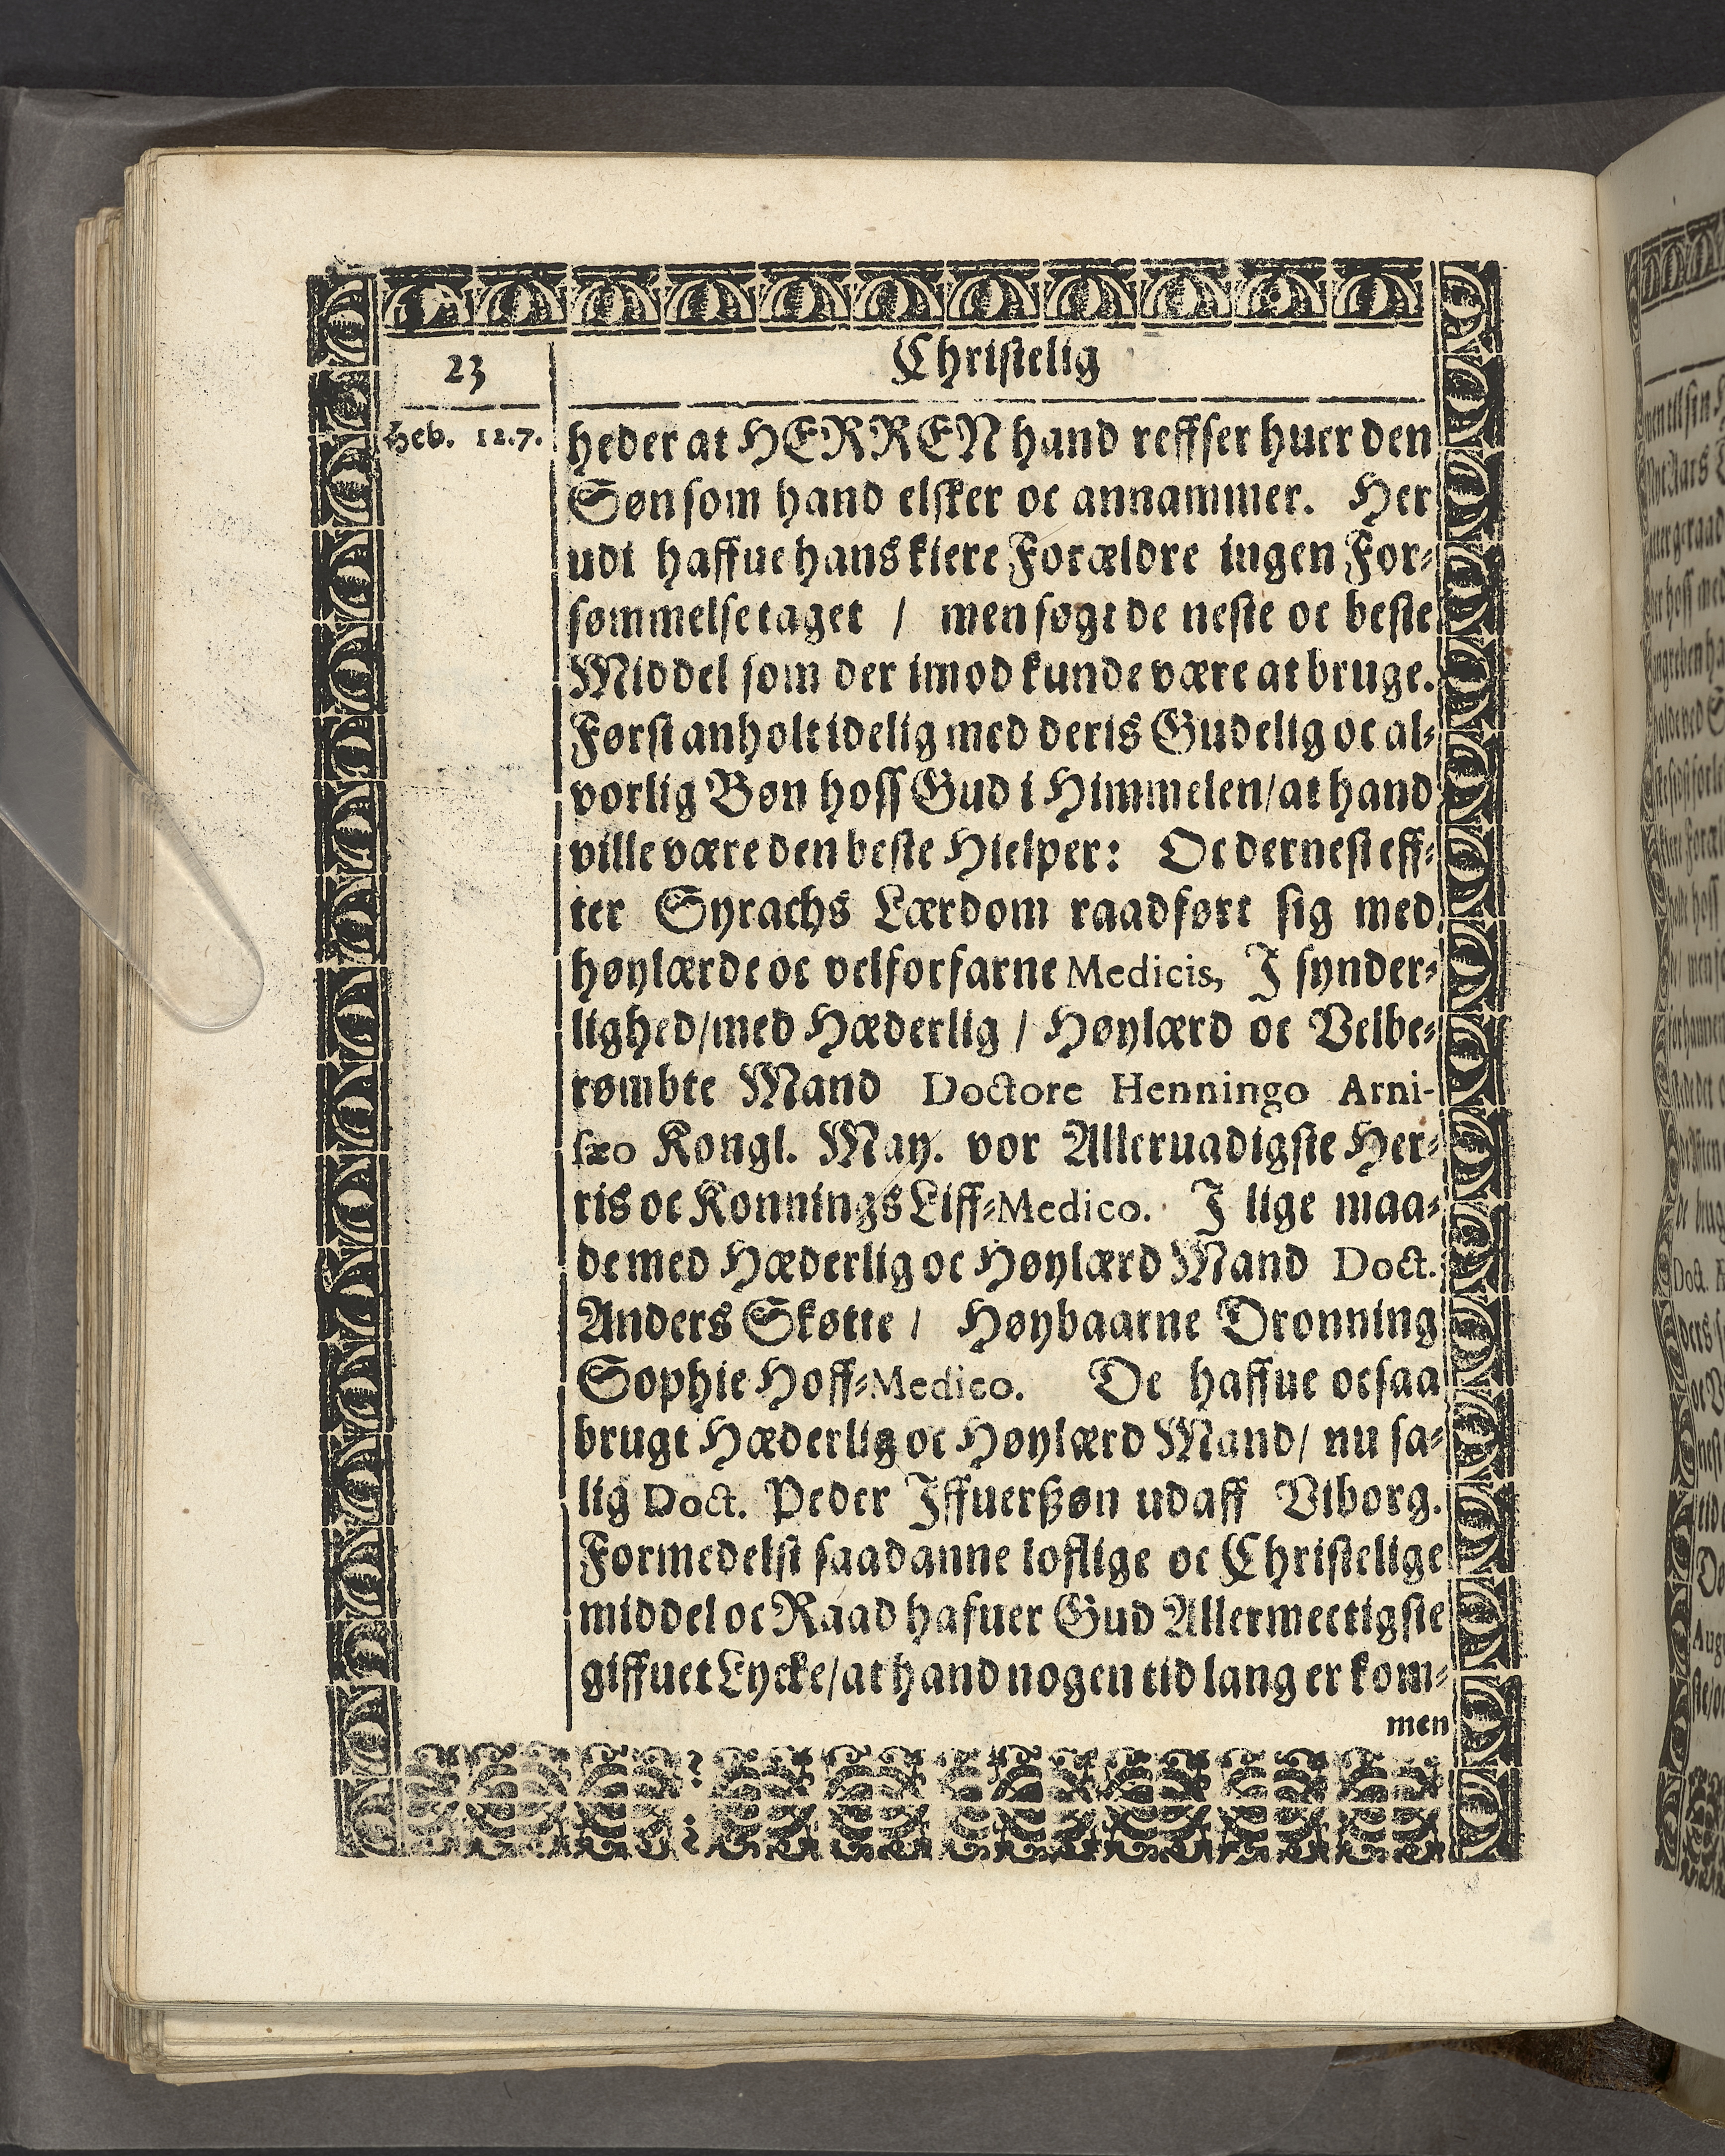 23
Christelig
Heb. 12.7.
heder at HERREN hand reffser huer den
Søn som hand elsker oc annammer. Her
udi haffue hans kiere Forældre ingen For-
sømmelse taget / men søgt de neste oc beste
Middel som der imod kunde være at bruge.
Først anholt idelig med deris Gudelig oc al-
vorlig Bøn hoss Gud i Himmelen/at hand
ville være den beste Hielper: Oc dernest eff-
ter Syrachs Lærdom raadført sig med
høylærde oc velforfarne Medicis, I synder-
lighed/med Hæderlig / Høylærd oc Velbe-
rømbte Mand Doctore Henningo Arni-
sæo Kongl. May. vor Allernadigste Her-
ris oc Konnings Liff-Medico. I lige maa-
de med Hæderlig oc Høylærd Mand Doct.
Anders Skøtte / Høybaarne Dronning
Sophie Hoff-Medico. De haffue ocsaa
brugt Hæderlig oc Høylærd Mand/ nu sa-
lig Doct. Peder Iffuerßøn udaff Viborg.
Formedelst saadanne loflige oc Christelige
middel oc Raad hafuer Gud Allermectigste
giffuet Lycke/at hand nogen tid lang er kom-
men